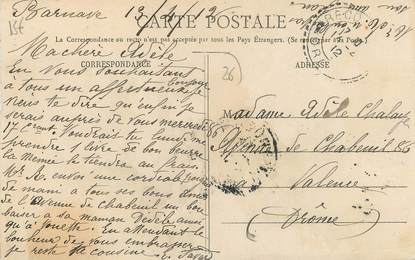 Barnave 13/4/12
CARTE POSTALE
La Correspondance au recto n'est pas acceptée par tous les Pays Étrangers. (Se renseigner à la Poste.)
CORRESPONDANCE
ADRESSE
Ma chère Adèle
En vous souhaitant
à tous un affectueux bonjour
veux te dire qu'enfin je
serai auprès de vous mercredi
17 Ct. Voudrais tu lui me
prendre 1 livre de bon beurre
la Mémé le tiendra au frais
Mr A. envoi une cordiale poignée
de main à tous ses bons amis
de l'avenue de Chabeuil un bon
baiser à sa maman Dédèle ainsi
qu'à Jouette. En attendant le
bonheur de vous embrasser
je reste ta cousine
Madame Adèle Chalaye
Avenue de Chabeuil 86
Valence
(Drôme)
26